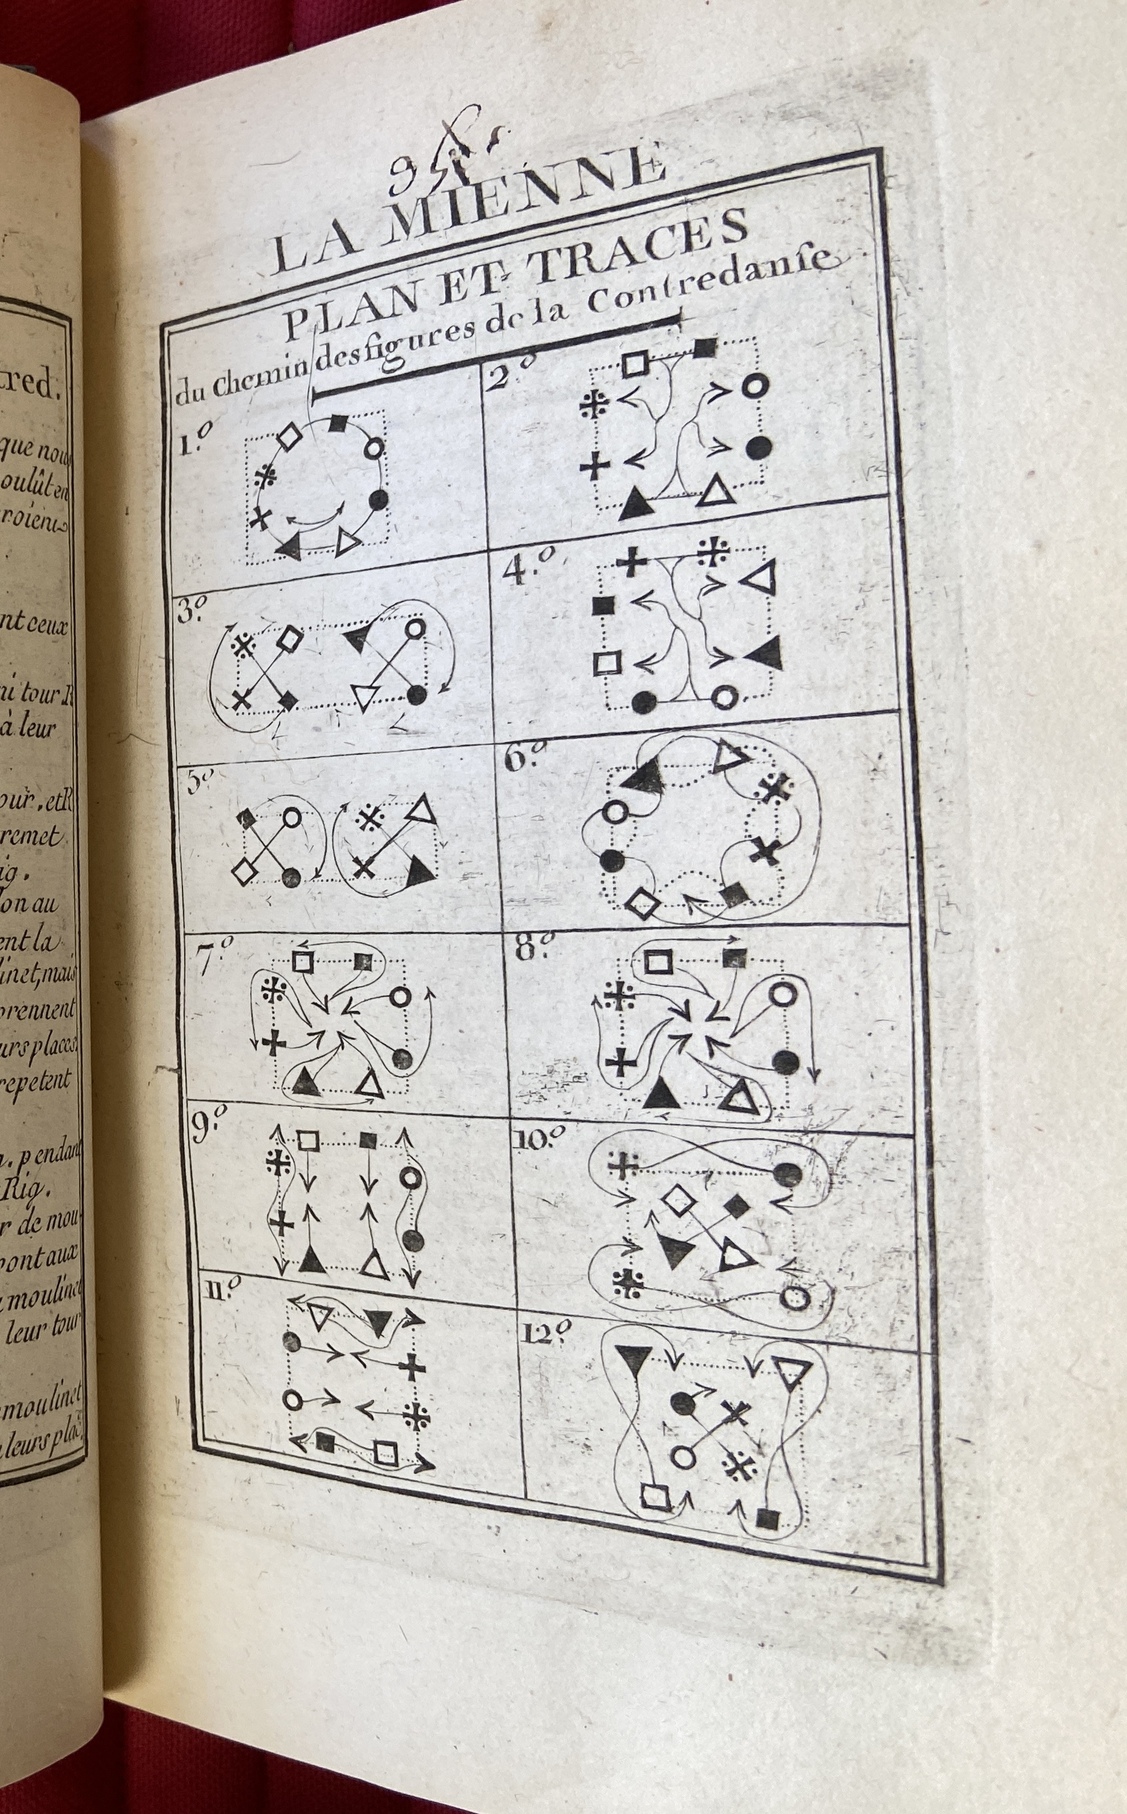 tred.
que nou
oulût en
roient
nt ceux
ui tour.R
à leur
our, et R
remet
ig.
on au
ent la
linet, mais
prennent
urs places.
repetent
. pendant
Rig.
r de mou-
ront aux
moulinet
leur tour
moulinet
leurs plac
LA MIENNE
PLAN ET TRACES
du Chemin des figures de la Contredanse
1.º
2.º
3.º
4.º
5.º
6.º
7.º
8.º
9.º
10.º
11.º
12.º